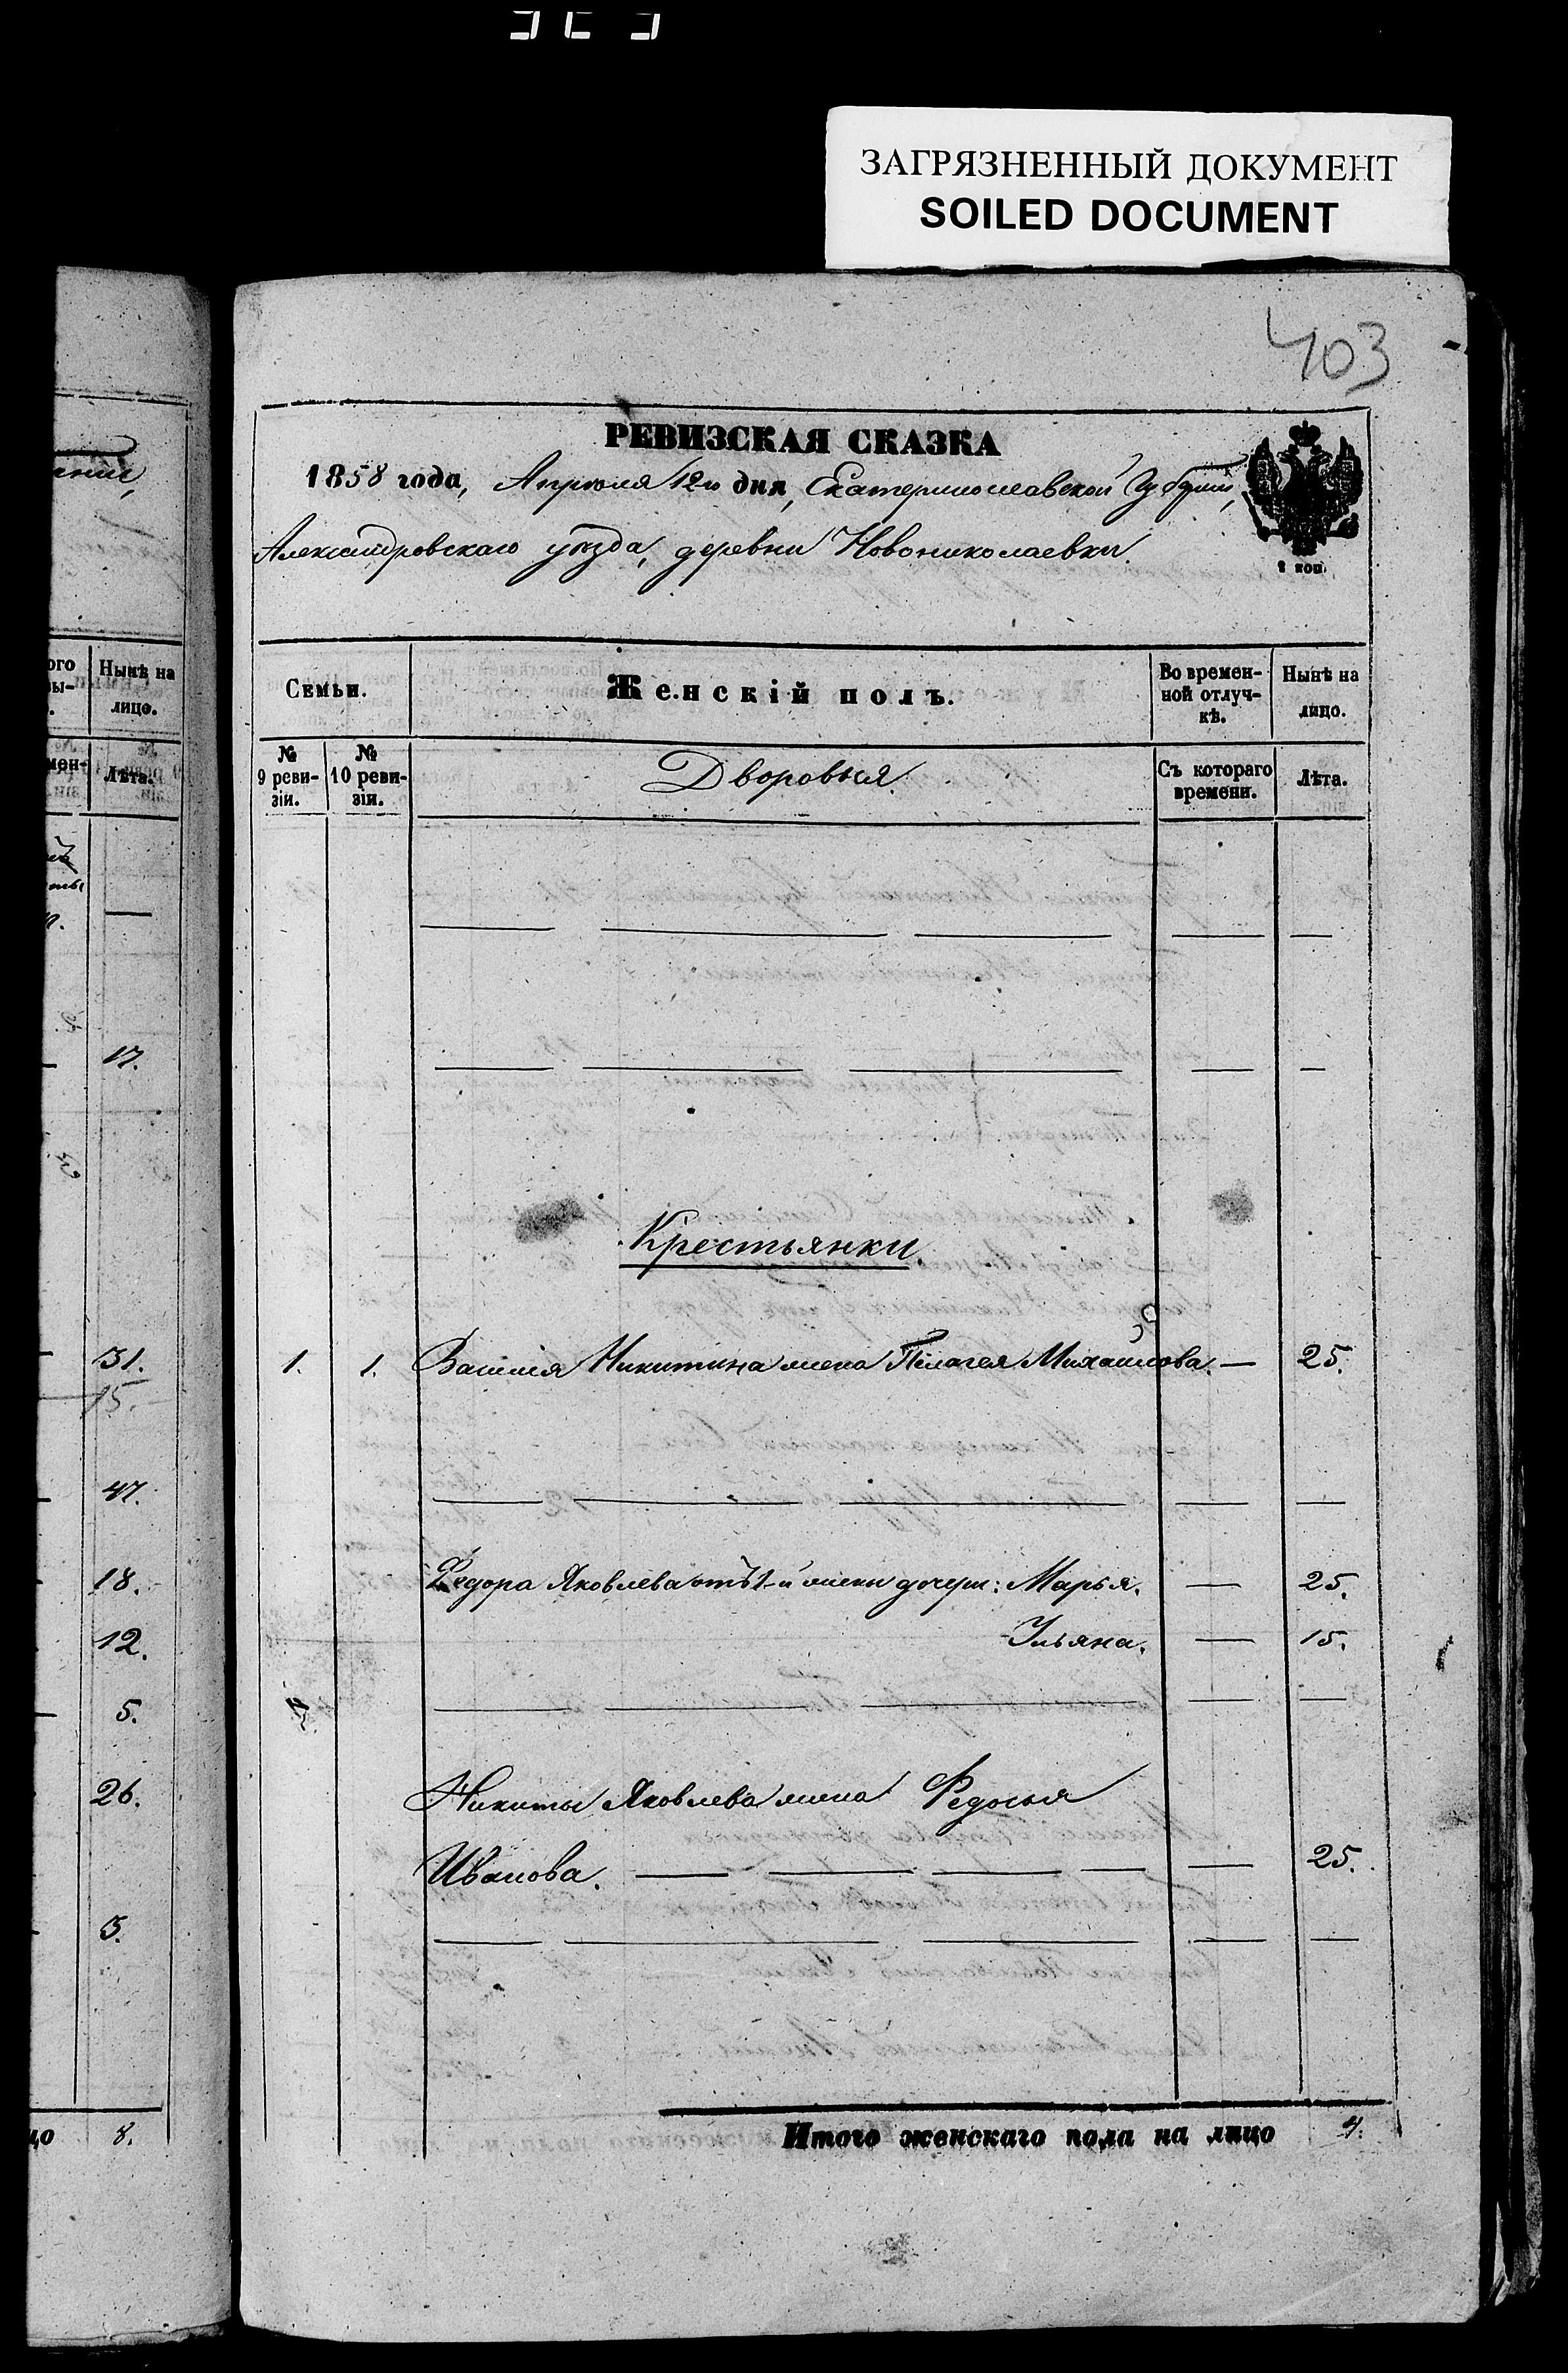 ЗАГРЯЗНЕННЫЙ ДОКУМЕНТ
SOILED DOCUMENT
403
РЕВИЗСКАЯ СКАЗКА
1858 года, Апреля 12го дня, Екатеринославской Губерніи,
Александровскаго уѣзда, деревни Новониколаевки.
1 коп.
Семьи.
Женскій полъ.
Во времен-
ной отлуч-
кѣ.
Нынѣ на
лицо.
№
9 реви-
зіи.
№
10 реви-
зіи.
Дворовыя
Съ котораго
времени.
Лѣта.
Крестьянки.
1. 1. Василія Никитина жена Пелагея Михайлова. — 25.
Федора Яковлева отъ 1-й жены дочери: Марья. — 25.
Ульяна. — 15.
Никиты Яковлева жена Федосья
Иванова. — 25.
Итого женскаго пола на лицо 4.
Нынѣ на
лицо.
Лѣта.
17.
31.
15.
47.
18.
12.
5.
26.
8.